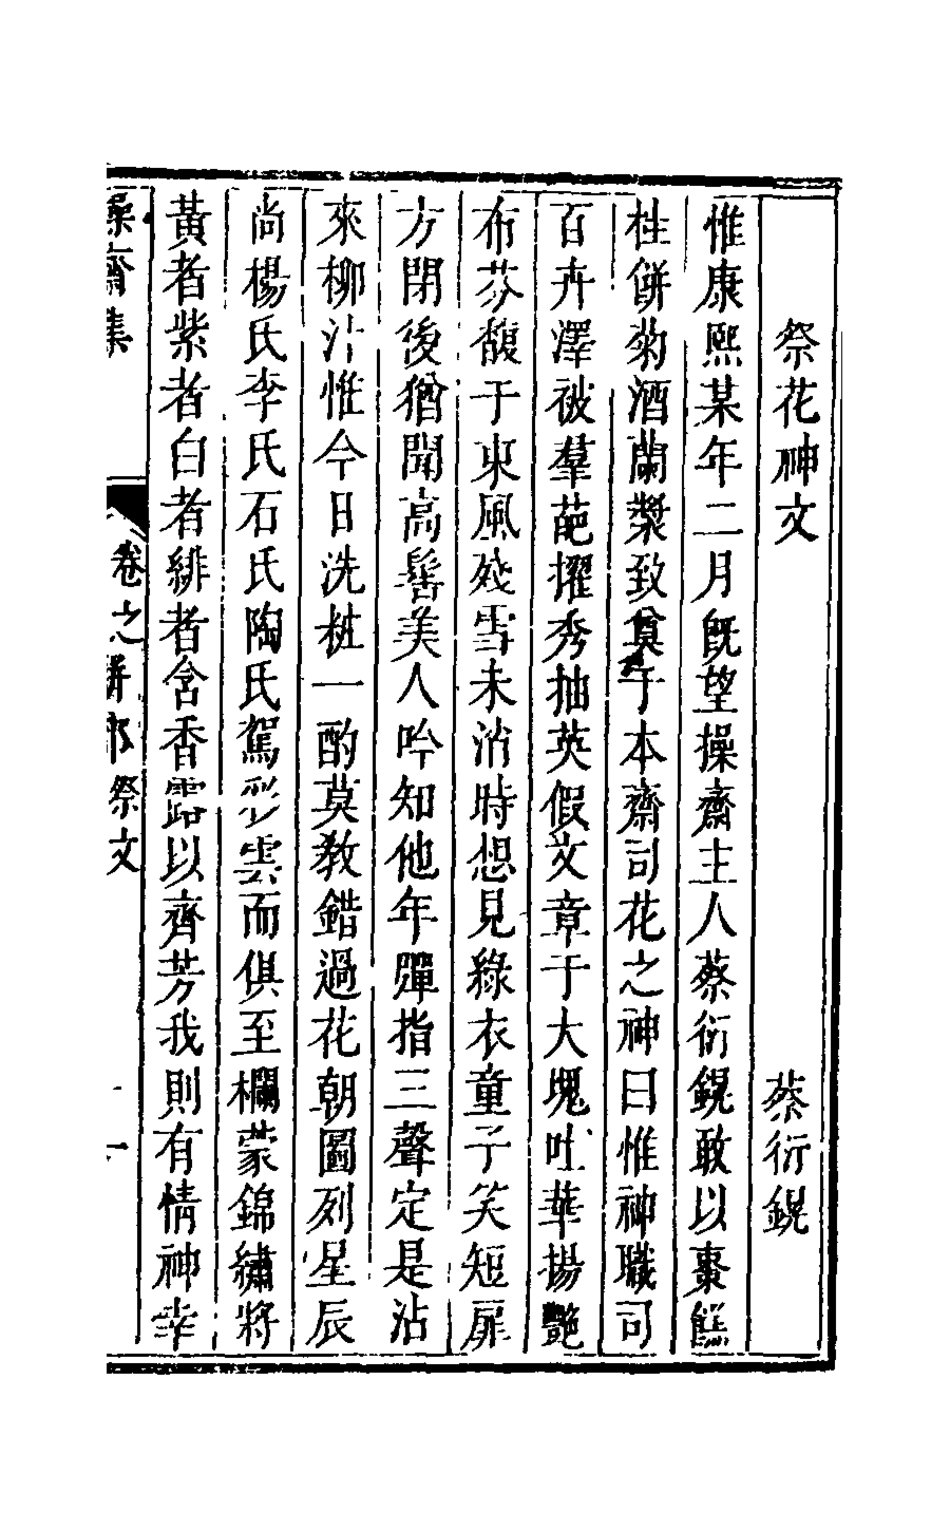 祭花神文　蔡衍鎤
惟康熙某年二月旣望操齋主人蔡衍鎤敢以棗饍
桂餅菊酒蘭漿致奠于本齋司花之神曰惟神職司
百卉澤被羣葩擢秀抽英假文章于大塊吐華揚艷
布芬馥于東風殘雪未消時想見綠衣童子笑短扉
方閉後猶聞高髻美人吟知他年彈指三聲定是沾
來柳汁惟今日洗粧一酌莫教錯過花朝圖列星辰
尚楊氏李氏石氏陶氏駕彩雲而俱至欄蒙錦繡將
黃者紫者白者緋者含香露以齊芳我則有情神幸
操齋集　卷之　駢部　祭文　一